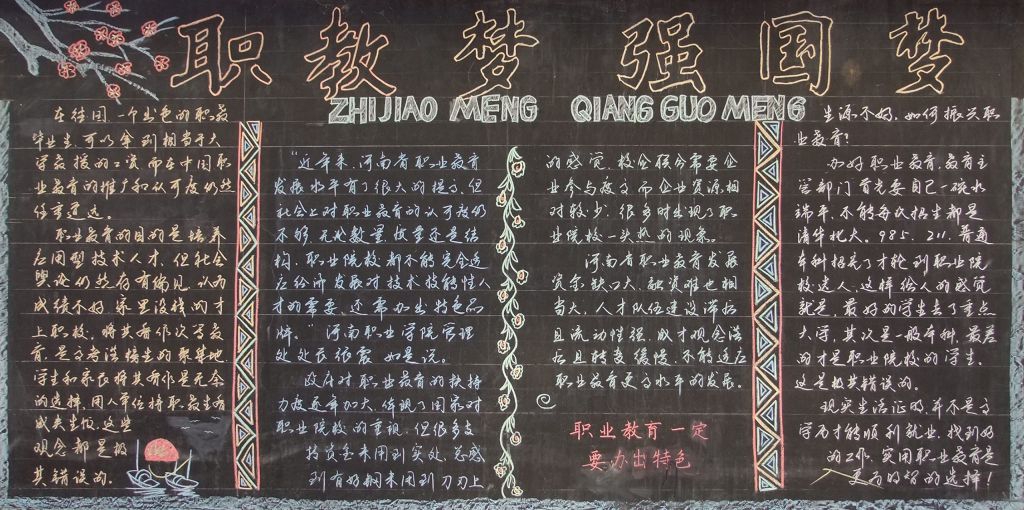 职教梦 强国梦
ZHI JIAO MENG QIANG GUO MENG
在德国一个出色的职教
毕业生,可以拿到相当于大
学教授的工资,而在中国职
业教育的推广和认可度仍然
任重道远。
职业教育的目的是培养
应用型技术人才,但社会
舆论仍然存有偏见,认为
成绩不好、家里没钱的才
上职校,将其看作次等教
育,是了差法标生的聚集地,
学生和家长将其看作是无奈
的选择,用人单位将职教生看
成失业似,这些
观念都是极
其错误的。
“近年来,河南省职业教育
发展水平有了很大的提高,但
社会上对职业教育的认可度仍
不够,无论数量,质量还是结
构,职业院校都不能完全适
应经济发展对技术技能性人
才的需要,还需办出特色品
牌。”河南职业学院管理
处处长张震如是说。
政府对职业教育的扶持
力度逐年加大,体现了国家对
职业院校的重视,但很多支
持资金未用到实处,总感
到有好钢未用到刀刃上
的感觉,校企联合需要企
业参与度高,而企业资源相
对较少,很多时出现了职
业院校一头热的现象。
河南省职业教育发展
资金缺口大,融资难也相
当大,人才队伍建设滞后
且流动性强,成才观念滞
后且转变缓慢,不能适应
职业教育更高水平的发展。
职业教育一定
要办出特色
生源不好,如何振兴职
业教育?
办好职业教育,教育主
管部门首先要自己一碗水
端平,不能每次招生都是
清华北大、985、211、普通
本科招完了才轮到职业院
校选人,这样给人的感觉
就是,最好的学生去了重点
大学,其次是一般本科,最差
的才是职业院校的学生,
这是极其错误的。
现实生活证明,并不是高
学历才能顺利就业,找到好
的工作,实用职业教育是
更为明智的选择!